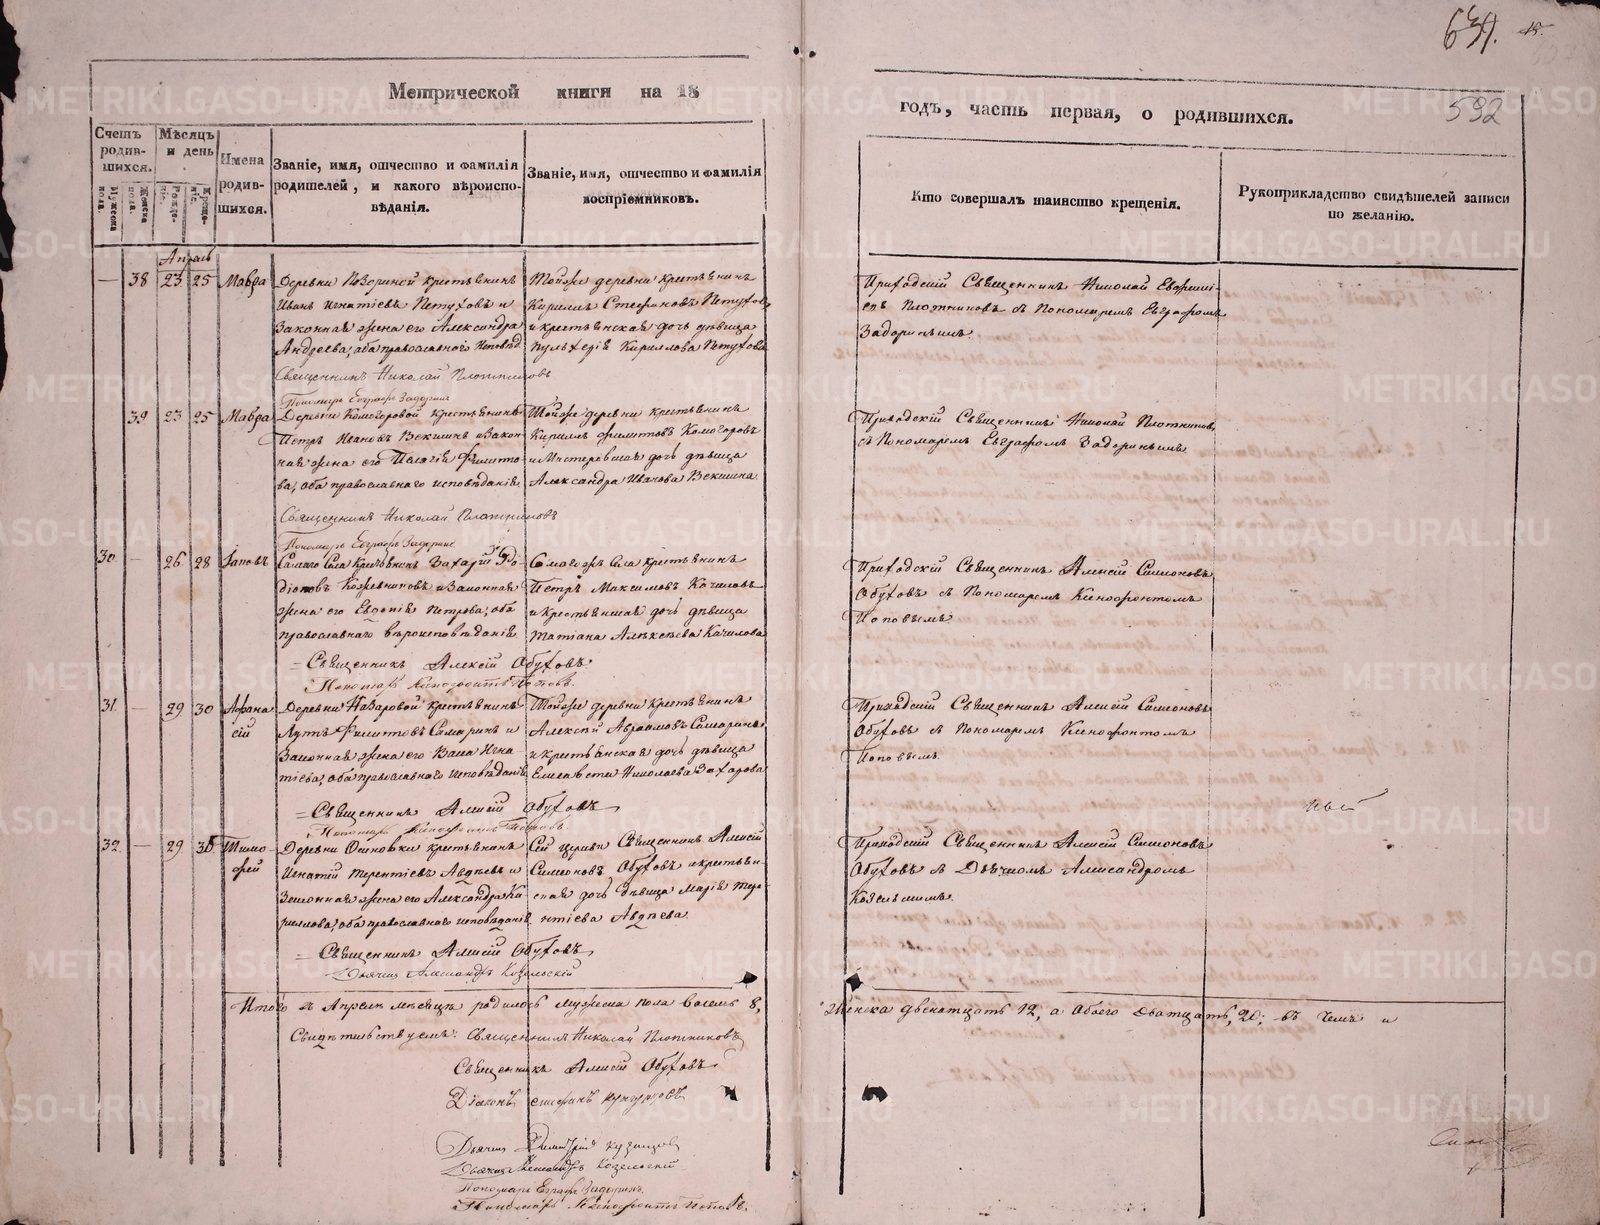 634.
592
Метрической книги на 18
годъ, часть первая, о родившихся.
Счетъ родив-
шихся.
Мужеска пола.
Женска пола.
Мѣсяцъ и день
Рожде-
нія.
Креще-
нія.
Имена
родив-
шихся.
Званіе, имя, отчество и фамилія
родителей, и какого вѣроиспо-
вѣданія.
Званіе, имя, отчество и фамилія
воспріемниковъ.
Кто совершалъ таинство крещенія.
Рукоприкладство свидѣтелей записи
по желанію.
Апрель
— 38 23 25 Мавра
Деревни крестьянинъ
Иванъ Игнатіевъ Петуховъ и
Законная жена его Александра
Андреева, оба православнаго исповѣд.
Священникъ Николай Плотниковъ
Пономарь Евграфъ Задоринъ
Тойже деревни крестьянинъ
Кириллъ Стефановъ Петуховъ
и крестьянская дочь дѣвица
Пульхерія Кириллова Петухова
Приходскій Священникъ Николай Евфимі-
евъ Плотниковъ съ Пономаремъ Евграфомъ
Задоринымъ.
39 23 25 Мавра
Деревни Комогоровой крестьянинъ
Петръ Ивановъ Векшинъ и Закон-
ная жена его Пелагія Филипо-
ва, оба православнаго исповѣданія
Священникъ Николай Плотниковъ
Пономарь Евграфъ Задоринъ
Тойже деревни крестьянинъ
Кириллъ Филиповъ Комогоровъ
и дочь дѣвица
Александра Иванова Векшина
Приходскій Священникъ Николай Плотниковъ,
съ Пономаремъ Евграфомъ Задоринымъ
30 — 26 28 Іаковъ
Самаго Села Крестьянинъ Захарій Ро-
діоновъ Кожевниковъ и Законная
жена его Евдокія Петрова, оба
православнаго вѣроисповѣданія
= Священникъ Алексій Обуховъ.
Пономарь Ксенофонтъ Поповъ.
Села крестьянинъ
Петръ Максимовъ Качиловъ
и Крестьянская дочь дѣвица
Татіана Алексѣева Качилова
Приходскій Священникъ Алексій Симеоновъ
Обуховъ съ Пономаремъ Ксенофонтомъ
Поповымъ
31. — 29 30 Афана
сій
Деревни Назаровой крестьянинъ
Филиповъ Самаринъ и
Законная жена его Васса Игна-
тіева, оба православнаго исповѣданія
= Священникъ Алексій Обуховъ
Пономарь Ксенофонтъ Поповъ
Тойже деревни крестьянинъ
Алексѣй Авраамовъ Самаринъ
и крестьянская дочь дѣвица
Елисавета Николаева Захарова
Приходскій Священникъ Алексій Симеоновъ
Обуховъ съ Пономаремъ Ксенофонтомъ
Поповымъ.
32. — 29 30 Тимо-
фей
Деревни крестьянинъ
Игнатій Терентіевъ Авдѣевъ и
Законная жена его Александра Ки-
риллова, оба православнаго исповѣданія
= Священникъ Алексій Обуховъ
Дьячекъ Александръ Козельскій
Сей церкви Священникъ Алексій
Симеоновъ Обуховъ и крестьян-
ская дочь дѣвица Марія Тере-
нтіева Авдѣева.
Приходскій Священникъ Алексій Симеоновъ
Обуховъ съ Дьячкомъ Александромъ
Козельскимъ.
Итого въ Апрелѣ мѣсяцѣ родилось мужеска пола восемь 8,
Женска двенатцать 12, а обоего дватцать, 20; въ чемъ и
Свидѣтельствуемъ: Священникъ Николай Плотниковъ
Священникъ Алексій Обуховъ
Діаконъ
Дьячекъ Димитрій Кузнецовъ
Дьячекъ Александръ Козельскій
Пономарь Евграфъ Задоринъ
Пономарь Ксенофонтъ Поповъ.
METRIKI.GASO-URAL.RU